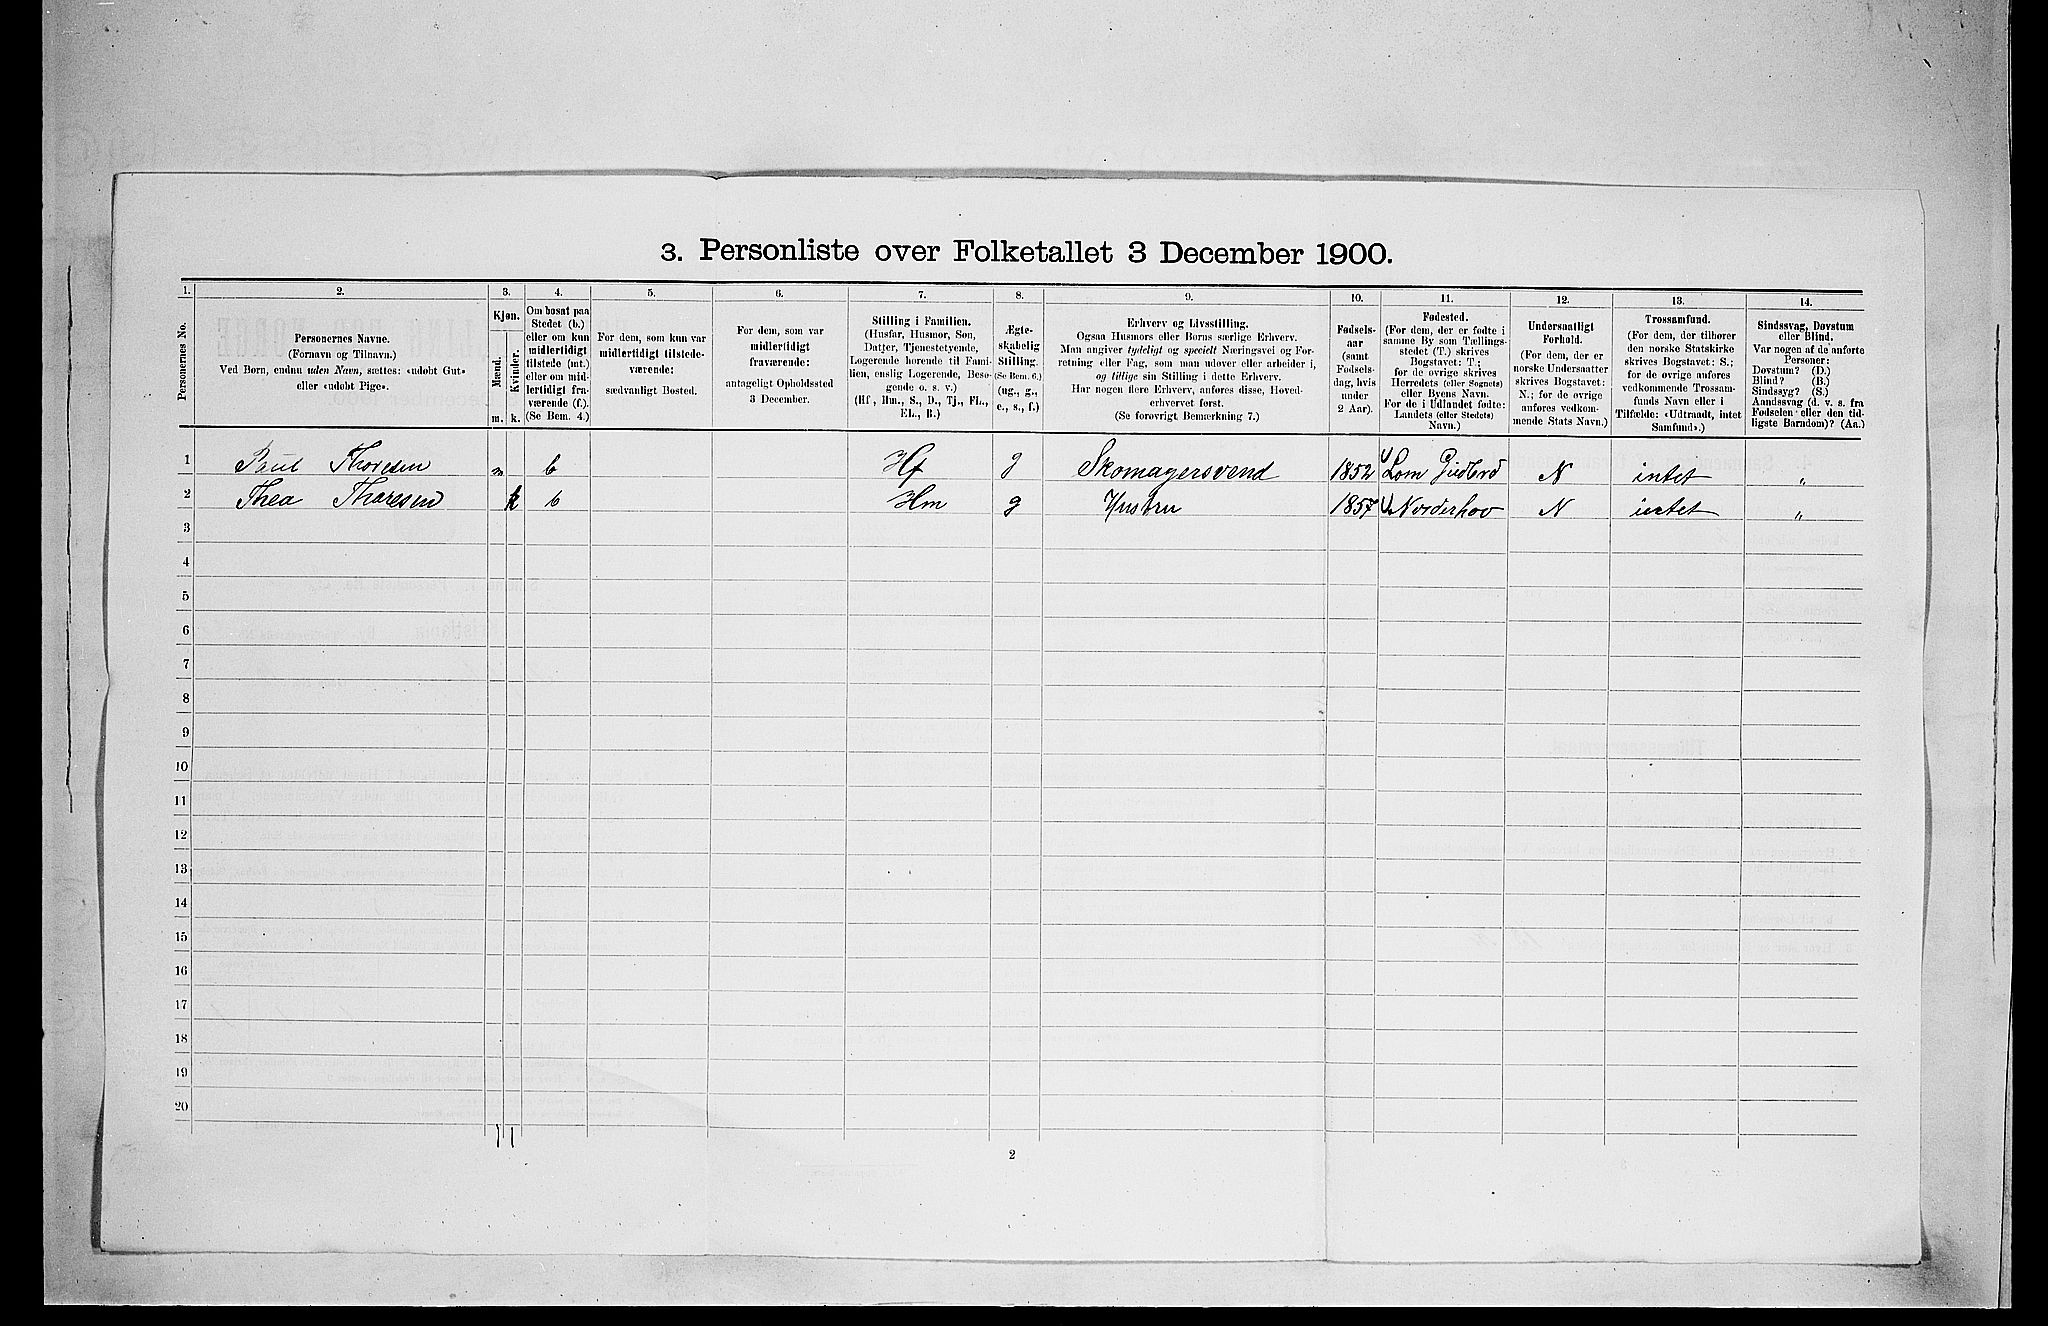 3. Personliste over Folketallet 3 December 1900.
1. 2. 3. 4. 5. 6. 7. 8. 9. 10. 11. 12. 13. 14.
Personernes No.
Personernes Navne.
(Fornavn og Tilnavn.)
Ved Børn, endnu uden Navn, sættes: «udøbt Gut»
eller «udøbt Pige».
Kjøn.
Mænd.
Kvinder.
m. k.
Om bosat paa
Stedet (b.)
eller om kun
midlertidigt
tilstede (mt.)
eller om mid-
lertidigt fra-
værende (f.).
(Se Bem. 4.)
For dem, som kun var
midlertidigt tilstede-
værende:
sædvanligt Bosted.
For dem, som var
midlertidigt
fraværende:
antageligt Opholdssted
3 December.
Stilling i Familien.
(Husfar, Husmor, Søn,
Datter, Tjenestetyende,
Logerende hørende til Fami-
lien, enslig Logerende, Besø-
gende o. s. v.)
(Hf., Hm., S., D., Tj., FL.,
EL., B.)
Ægte-
skabelig
Stilling.
(Se Bem. 6.)
(ug., g.,
e., s., f.)
Erhverv og Livsstilling.
Ogsaa Husmors eller Børns særlige Erhverv.
Man angiver tydeligt og specielt Næringsvei og For-
retning eller Fag, som man udøver eller arbeider i,
og tillige sin Stilling i dette Erhverv.
Har nogen flere Erhverv, anføres disse, Hoved-
erhvervet først.
(Se forøvrigt Bemærkning 7.)
Fødsels-
aar
(samt
Fødsels-
dag, hvis
under
2 Aar).
Fødested.
(For dem, der er fødte i
samme By som Tællings-
stedet (T.) skrives
Bogstavet: T.;
for de øvrige skrives
Herredets (eller Sognets)
eller Byens Navn.
For de i Udlandet fødte:
Landets (eller Stedets)
Navn.)
Undersaatligt
Forhold.
(For dem, der er
norske Undersaatter
skrives Bogstavet:
N.; for de øvrige
anføres vedkom-
mende Stats Navn.)
Trossamfund.
(For dem, der tilhører
den norske Statskirke
skrives Bogstavet: S.;
for de øvrige anføres
vedkommende Trossam-
funds Navn eller i
Tilfælde: «Udtraadt, intet
Samfund».)
Sindssvag, Døvstum
eller Blind.
Var nogen af de anførte
Personer:
Døvstum? (D.)
Blind? (B.)
Sindssyg? (S.)
Aandssvag (d. v. s. fra
Fødselen eller den tid-
ligste Barndom)? (Aa.)
1 Paul Thoresen m b Hf g Skomagersvend 1852 Lom Gudbrd N intet "
2 Thea Thoresen k b Hm g Hustru 1857 Norderhov N intet "
3
4
5
6
7
8
9
10
11
12
13
14
15
16
17
18
19
20
1 1
2